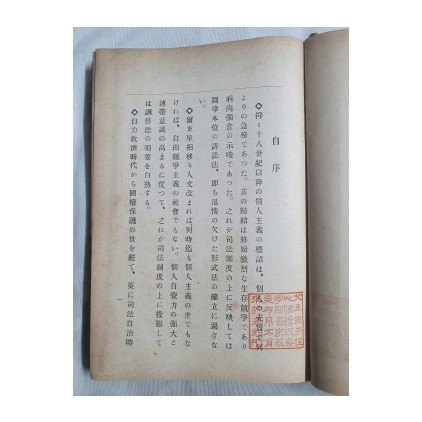 自序
◇抑々十八世紀以降の個人主義の標語は、個人の
よりの急務であつた。其の歸結は終始激烈な生存競爭であり
弱肉強食の示唆であつた。之れが司法制度の上に反映しては
鬪爭本位の訴訟法、即ち溫情の欠けた形式法の確立に過ぎな
い。
◇爾來星移り人文改まれば何時迄も個人主義の世でもな
ければ、自由競爭主義の社會でもない。個人自覺力の强大と
連帶意識の高まるに從つて、之れが司法制度の上に投影して
は調停法の須要を白熱する。
◇自力救濟時代から國權保護の世を經て、更に司法自治時